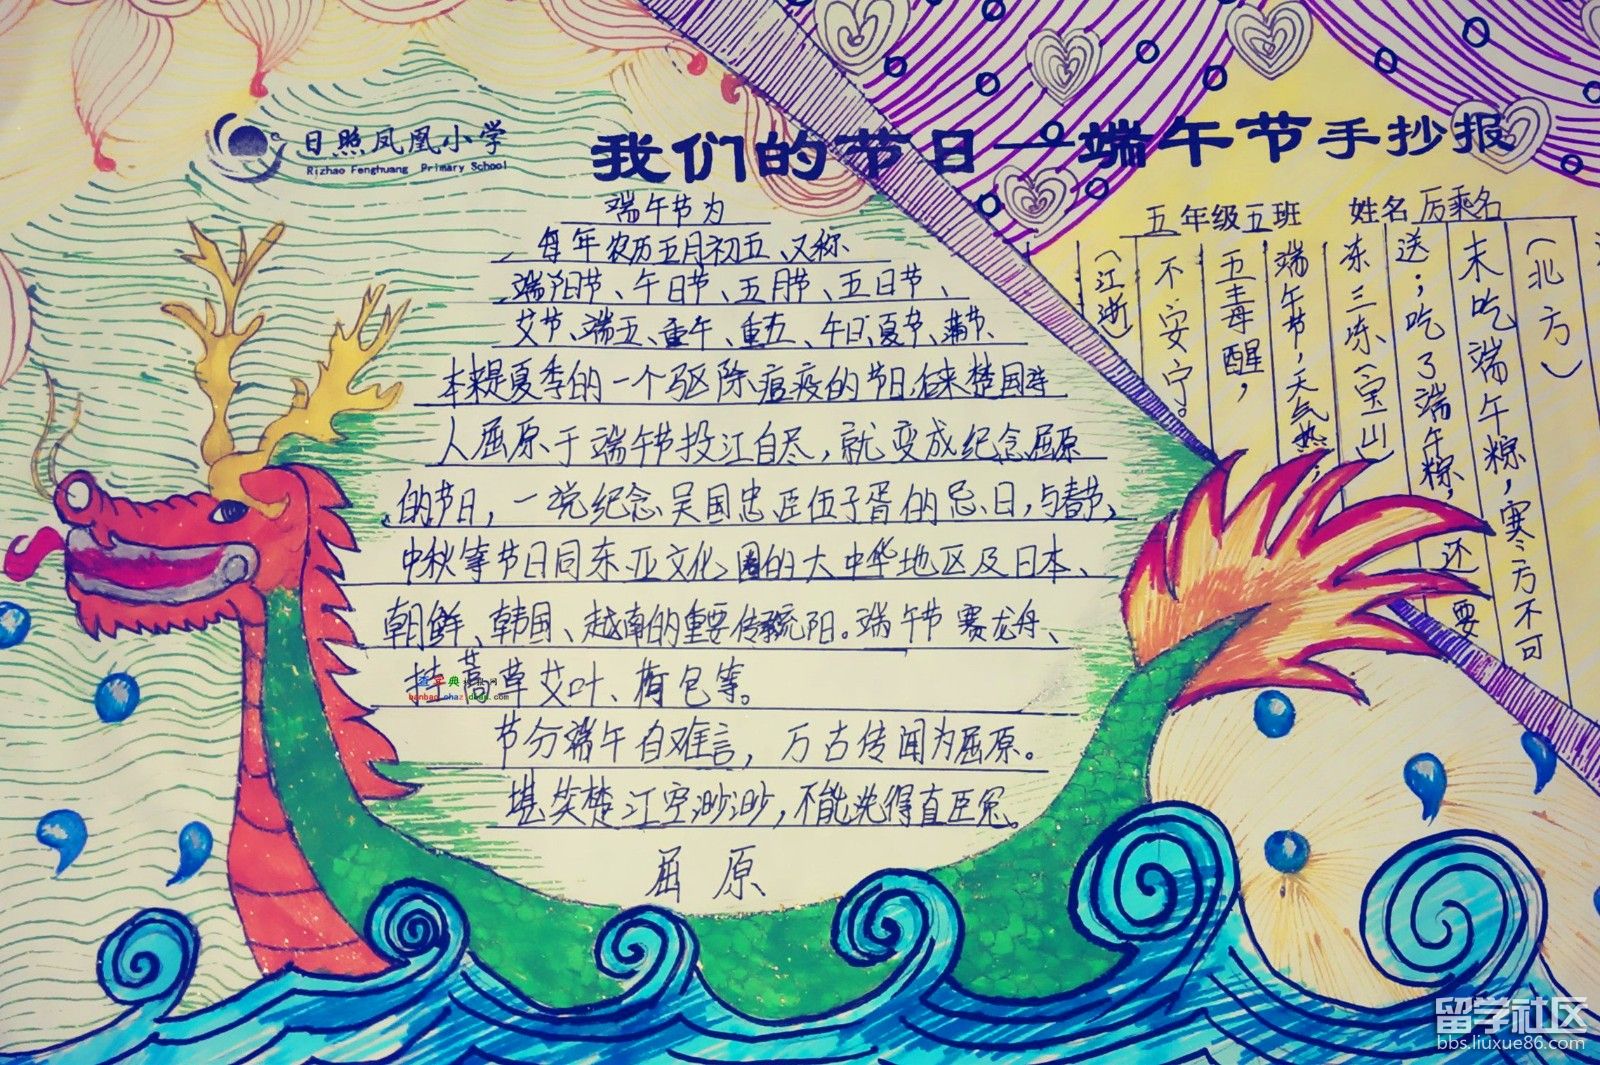 日照凤凰小学
Rizhao Fenghuang Primary School
我们的节日—端午节手抄报
五年级五班 姓名 厉乘名
端午节为
每年农历五月初五、又称
端阳节、午日节、五月节、五日节、
艾节、端五、重午、重五、午日、夏节、蒲节、
本来是夏季的一个驱除瘟疫的节日,后来楚国诗
人屈原于端午节投江自尽,就变成纪念屈原
的节日,一说纪念吴国忠臣伍子胥的忌日,与春节、
中秋等节日同东亚文化圈的大中华地区及日本、
朝鲜、韩国、越南的重要传统阳。端午节赛龙舟、
挂菖草艾叶、荷包等。
节分端午自难言,万古传闻为屈原。
堪笑楚江空渺渺,不能洗得直臣冤。
屈原
(北方)
未吃端午粽,寒衣不可
送;吃了端午粽,还要
冻三冻(宝山)
端午节,天气热;
五毒醒,
不安宁。
(江浙)
查字典
banbao.chazidian.com
留学社区
bbs.liuxue86.com